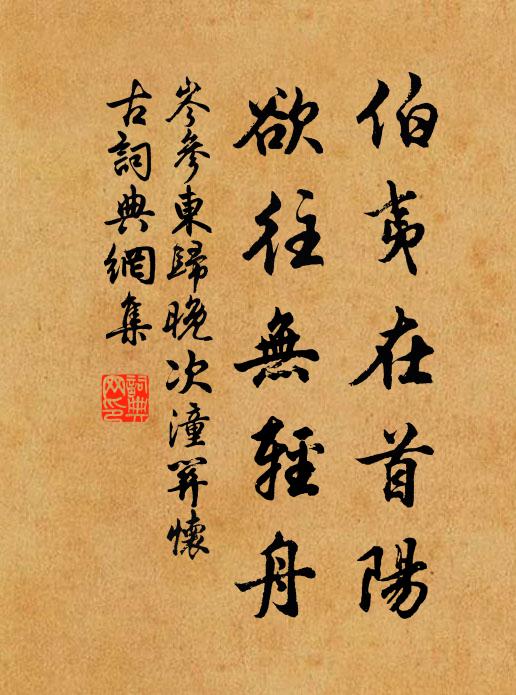 伯夷在首陽
欲往無輕舟
岑參東歸晚次潼関懷
古詞典網集
詞典網印